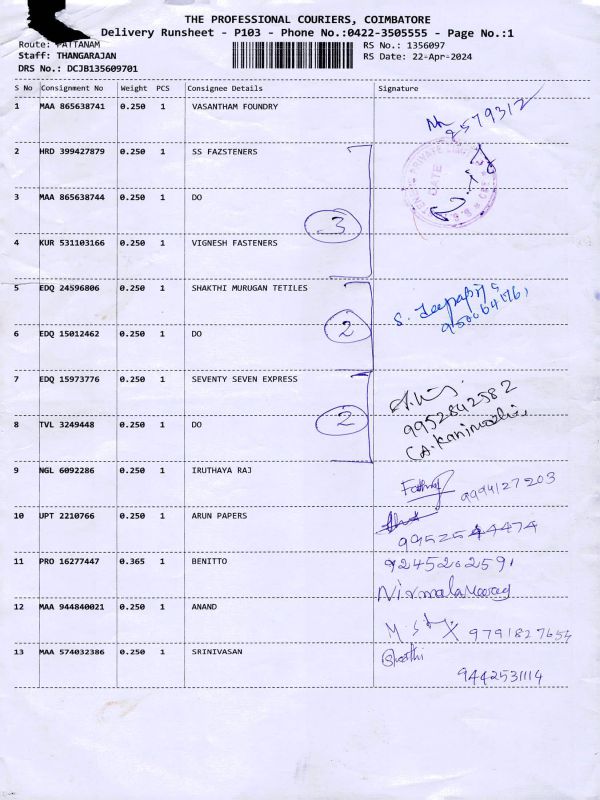 THE PROFESSIONAL COURIERS, COIMBATORE
Delivery Runsheet - P103 - Phone No.:0422-3505555 - Page No.:1
Route: PATTANAM RS No.: 1356097
Staff: THANGARAJAN RS Date: 22-Apr-2024
DRS No.: DCJB135609701
S No Consignment No Weight PCS Consignee Details Signature
1 MAA 865638741 0.250 1 VASANTHAM FOUNDRY
2579312
2 HRD 399427879 0.250 1 SS FAZSTENERS
3 MAA 865638744 0.250 1 DO
3
4 KUR 531103166 0.250 1 VIGNESH FASTENERS
5 EDQ 24596806 0.250 1 SHAKTHI MURUGAN TETILES
6 EDQ 15012462 0.250 1 DO
2
7 EDQ 15973776 0.250 1 SEVENTY SEVEN EXPRESS
9952842582
8 TVL 3249448 0.250 1 DO
2
9 NGL 6092286 0.250 1 IRUTHAYA RAJ
9994127203
10 UPT 2210766 0.250 1 ARUN PAPERS
11 PRO 16277447 0.365 1 BENITTO 9245202591
12 MAA 944840021 0.250 1 ANAND
9791827654
13 MAA 574032386 0.250 1 SRINIVASAN
9442531114